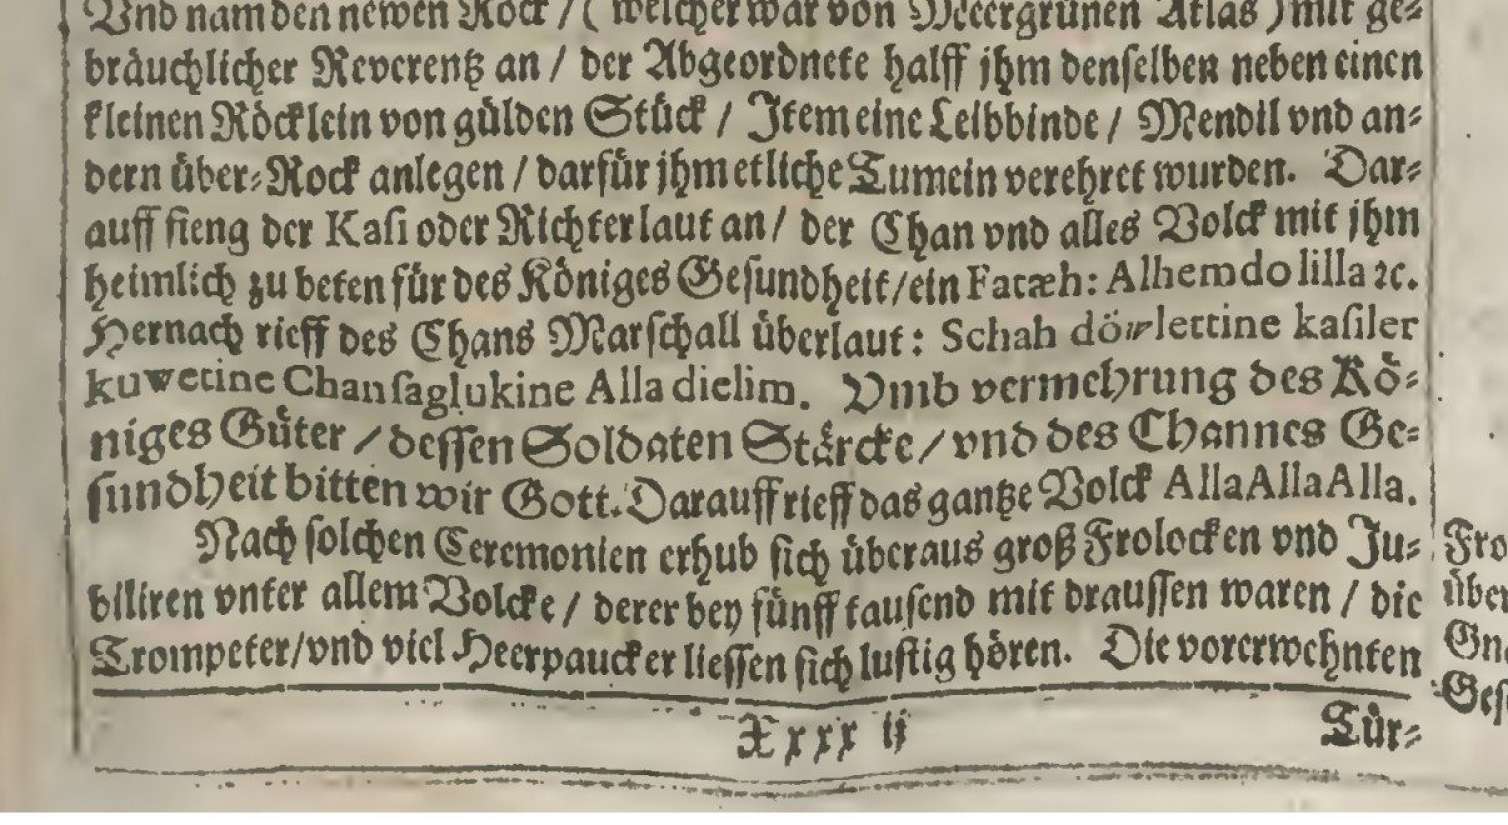 Vnd nam den newen Rock / ( welcher war von Meergrünen Atlas ) mit ge⸗
bräuchlicher Reverentz an / der Abgeordnete halff jhm denselben neben einen
kleinen Röcklein von gülden Stück / Item eine Leibbinde / Mendil vnd an⸗
dern über⸗Rock anlegen / darfür jhm etliche Tumein verehret wurden. Dar⸗
auff fieng der Kasi oder Richter laut an / der Chan vnd alles Volck mit jhm
heimlich zu beten für des Königes Gesundheit / ein Fatæh: Alhemdo lilla ꝛc.
Hernach rieff des Chans Marschall überlaut : Schah döwlettine kasiler
kuwetine Chan saglukine Alla dielim. Vmb vermehrung des Kö⸗
niges Güter / dessen Soldaten Stärcke / vnd des Channes Ge⸗
sundheit bitten wir Gott. Darauff rieff das gantze Volck Alla Alla Alla.
Nach solchen Ceremonien erhub sich überaus groß Frolocken vnd Ju⸗
biliren vnter allem Volcke / derer bey fünff tausend mit draussen waren / die
Trompeter / vnd viel Heerpaucker liessen sich lustig hören. Die vorerwehnten
Xxxx ij
Tür⸗
Fro
über
Gn
Ges